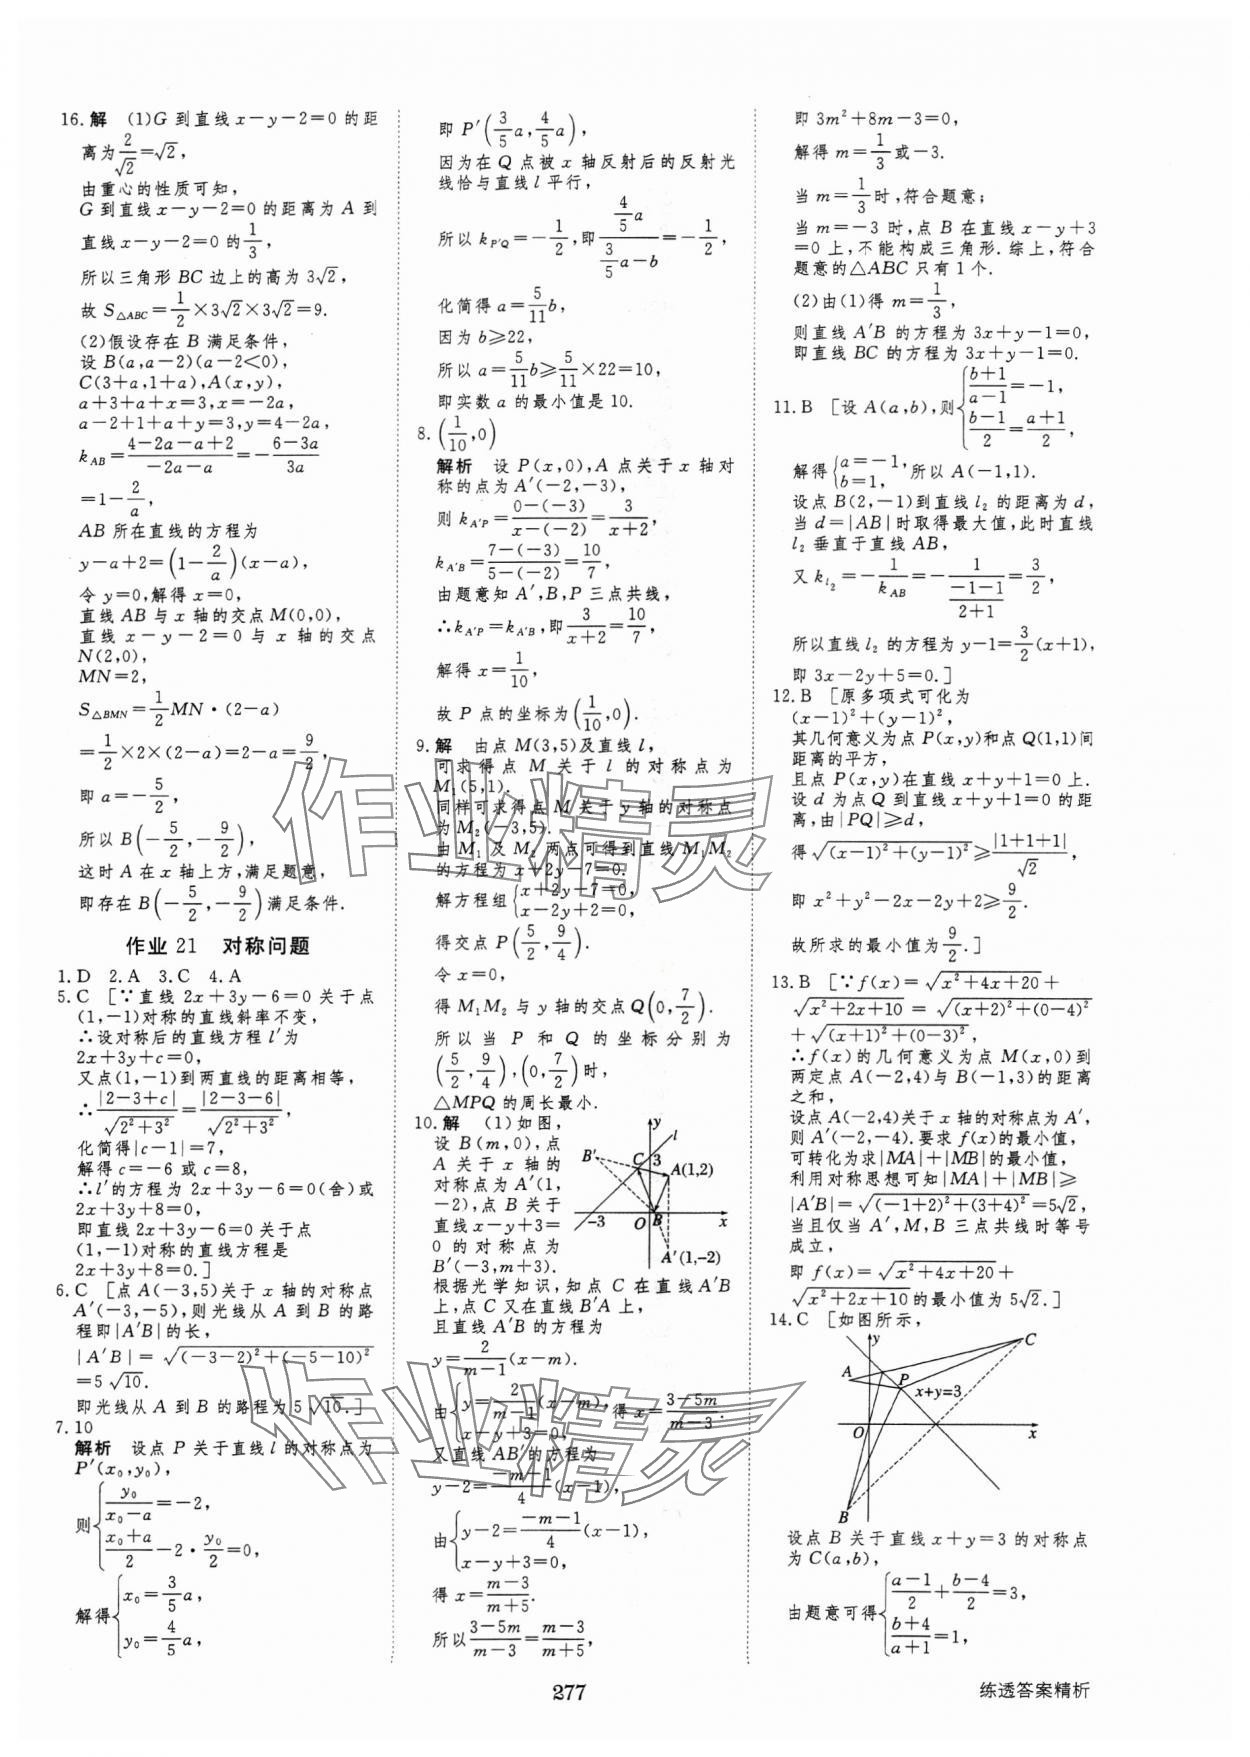 16. 解 (1)G 到直线 x-y-2=0 的距
离为 2/√2=√2,
由重心的性质可知,
G 到直线 x-y-2=0 的距离为 A 到
直线 x-y-2=0 的 1/3,
所以三角形 BC 边上的高为 3√2,
故 S△ABC=1/2×3√2×3√2=9.
(2)假设存在 B 满足条件,
设 B(a,a-2)(a-2<0),
C(3+a,1+a),A(x,y),
a+3+a+x=3,x=-2a,
a-2+1+a+y=3,y=4-2a,
kAB=(4-2a-a+2)/(-2a-a)=-(6-3a)/(3a)
=1-2/a,
AB 所在直线的方程为
y-a+2=(1-2/a)(x-a),
令 y=0,解得 x=0,
直线 AB 与 x 轴的交点 M(0,0),
直线 x-y-2=0 与 x 轴的交点
N(2,0),
MN=2,
S△BMN=1/2MN·(2-a)
=1/2×2×(2-a)=2-a=9/2,
即 a=-5/2,
所以 B(-5/2,-9/2),
这时 A 在 x 轴上方,满足题意,
即存在 B(-5/2,-9/2)满足条件.
作业 21 对称问题
1. D 2. A 3. C 4. A
5. C [∵直线 2x+3y-6=0 关于点
(1,-1)对称的直线斜率不变,
∴设对称后的直线方程 l′为
2x+3y+c=0,
又点(1,-1)到两直线的距离相等,
∴|2-3+c|/√(2²+3²)=|2-3-6|/√(2²+3²),
化简得|c-1|=7,
解得 c=-6 或 c=8,
∴l′的方程为 2x+3y-6=0(舍)或
2x+3y+8=0,
即直线 2x+3y-6=0 关于点
(1,-1)对称的直线方程是
2x+3y+8=0.]
6. C [点 A(-3,5)关于 x 轴的对称点
A′(-3,-5),则光线从 A 到 B 的路
程即|A′B|的长,
|A′B|=√((-3-2)²+(-5-10)²
=5√10.
即光线从 A 到 B 的路程为 5√10.]
7. 10
解析 设点 P 关于直线 l 的对称点为
P′(x₀,y₀),
则{y₀/(x₀-a)=-2,
(x₀+a)/2-2·y₀/2=0,
解得{x₀=3/5a,
y₀=4/5a,
即 P′(3/5a,4/5a),
因为在 Q 点被 x 轴反射后的反射光
线恰与直线 l 平行,
所以 kP′Q=-1/2,即(4/5a)/(3/5a-b)=-1/2,
化简得 a=5/11b,
因为 b≥22,
所以 a=5/11b≥5/11×22=10,
即实数 a 的最小值是 10.
8. (1/10,0)
解析 设 P(x,0),A 点关于 x 轴对
称的点为 A′(-2,-3),
则 kA′P=(0-(-3))/(x-(-2))=3/(x+2),
kA′B=(7-(-3))/(5-(-2))=10/7,
由题意知 A′,B,P 三点共线,
∴kA′P=kA′B,即3/(x+2)=10/7,
解得 x=1/10,
故 P 点的坐标为(1/10,0).
9. 解 由点 M(3,5)及直线 l,
可求得点 M 关于 l 的对称点为
M₁(5,1).
同样可求得点 M 关于 y 轴的对称点
为 M₂(-3,5).
由 M₁ 及 M₂ 两点可得到直线 M₁M₂
的方程为 x+2y-7=0.
解方程组{x+2y-7=0,
x-2y+2=0,
得交点 P(5/2,9/4).
令 x=0,
得 M₁M₂ 与 y 轴的交点 Q(0,7/2).
所以当 P 和 Q 的坐标分别为
(5/2,9/4),(0,7/2)时,
△MPQ 的周长最小.
10. 解 (1)如图,
设 B(m,0),点
A 关于 x 轴的
对称点为 A′(1,
-2),点 B 关于
直线 x-y+3=
0 的对称点为
B′(-3,m+3).
y
l
B′
C 3
A(1,2)
-3
O B
x
A′(1,-2)
根据光学知识,知点 C 在直线 A′B
上,点 C 又在直线 B′A 上,
且直线 A′B 的方程为
y=2/(m-1)(x-m).
由{y=2/(m-1)(x-m),
x-y+3=0,
得 x=(3-5m)/(m-3).
又直线 AB′的方程为
y-2=(-m-1)/4(x-1),
由{y-2=(-m-1)/4(x-1),
x-y+3=0,
得 x=(m-3)/(m+5).
所以(3-5m)/(m-3)=(m-3)/(m+5),
即 3m²+8m-3=0,
解得 m=1/3或-3.
当 m=1/3时,符合题意;
当 m=-3 时,点 B 在直线 x-y+3
=0 上,不能构成三角形.综上,符合
题意的△ABC 只有 1 个.
(2)由(1)得 m=1/3,
则直线 A′B 的方程为 3x+y-1=0,
即直线 BC 的方程为 3x+y-1=0.
11. B [设 A(a,b),则{(b+1)/(a-1)=-1,
(b-1)/2=(a+1)/2,
解得{a=-1,
b=1,
所以 A(-1,1).
设点 B(2,-1)到直线 l₂ 的距离为 d,
当 d=|AB|时取得最大值,此时直线
l₂ 垂直于直线 AB,
又 kl₂=-1/kAB=-1/((-1-1)/(2+1))=3/2,
所以直线 l₂ 的方程为 y-1=3/2(x+1),
即 3x-2y+5=0.]
12. B [原多项式可化为
(x-1)²+(y-1)²,
其几何意义为点 P(x,y)和点 Q(1,1)间
距离的平方,
且点 P(x,y)在直线 x+y+1=0 上.
设 d 为点 Q 到直线 x+y+1=0 的距
离,由|PQ|≥d,
得√((x-1)²+(y-1)²)≥|1+1+1|/√2,
即 x²+y²-2x-2y+2≥9/2.
故所求的最小值为9/2.]
13. B [∵f(x)=√(x²+4x+20)+
√(x²+2x+10)=√((x+2)²+(0-4)²)
+√((x+1)²+(0-3)²),
∴f(x)的几何意义为点 M(x,0)到
两定点 A(-2,4)与 B(-1,3)的距离
之和,
设点 A(-2,4)关于 x 轴的对称点为 A′,
则 A′(-2,-4).要求 f(x)的最小值,
可转化为求|MA|+|MB|的最小值,
利用对称思想可知|MA|+|MB|≥
|A′B|=√((-1+2)²+(3+4)²)=5√2,
当且仅当 A′,M,B 三点共线时等号
成立,
即 f(x)=√(x²+4x+20)+
√(x²+2x+10)的最小值为 5√2.]
14. C [如图所示,
y
C
A
P
x+y=3
O
x
B
设点 B 关于直线 x+y=3 的对称点
为 C(a,b),
由题意可得{(a-1)/2+(b-4)/2=3,
(b+4)/(a+1)=1,
277
练透答案精析
作业精灵
作业精灵